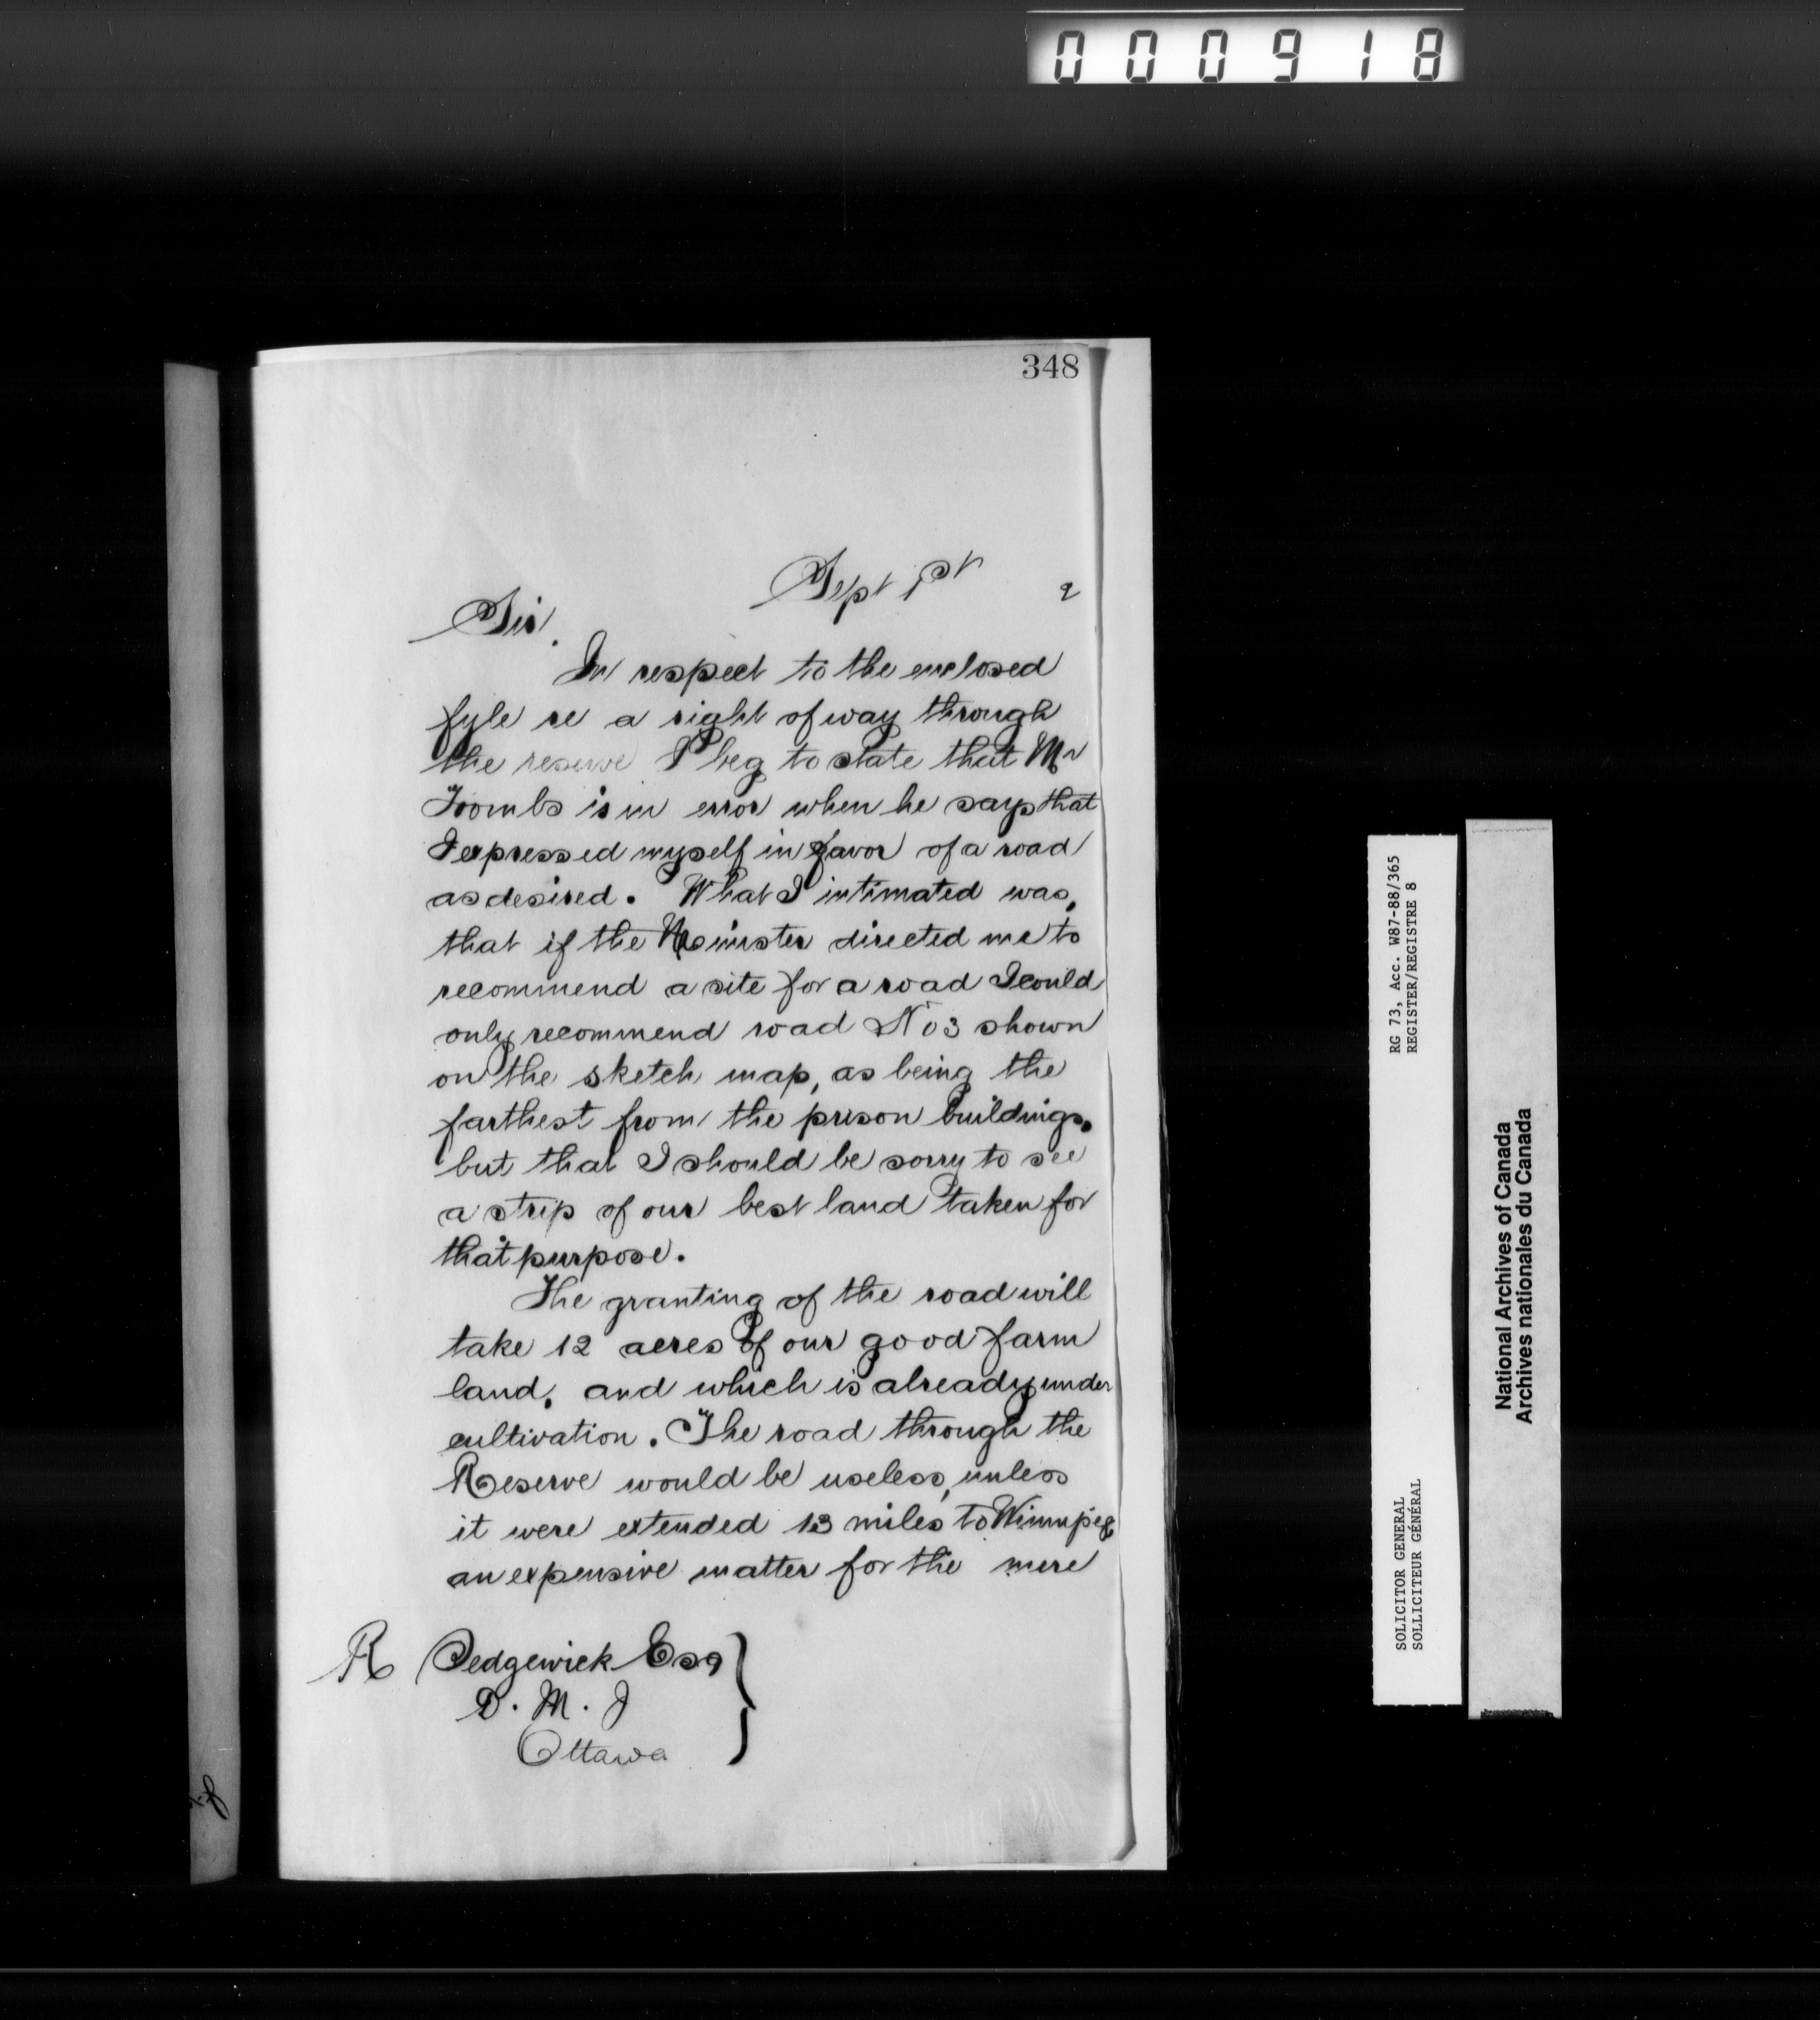 000918
348
Sept 1st 2
Sir.
In respect to the enclosed
fyle re a right of way through
the reserve I beg to state that Mr
Toombs is in error when he says that
I expressed myself in favor of a road
as desired. What I intimated was,
that if the Minister directed me to
recommend a site for a road I could
only recommend road No 3 shown
on the sketch map, as being the
farthest from the prison buildings,
but that I should be sorry to see
a strip of our best land taken for
that purpose.
The granting of the road will
take 12 acres of our good farm
land, and which is already under
cultivation. The road through the
Reserve would be useless, unless
it were extended 13 miles to Winnipeg
an expensive matter for the mere
R Sedgewick Esq
D. M. J
Ottawa
RG 73, Acc. W87-88/365
REGISTER/REGISTRE 8
SOLICITOR GENERAL
SOLLICITEUR GÉNÉRAL
National Archives of Canada
Archives nationales du Canada